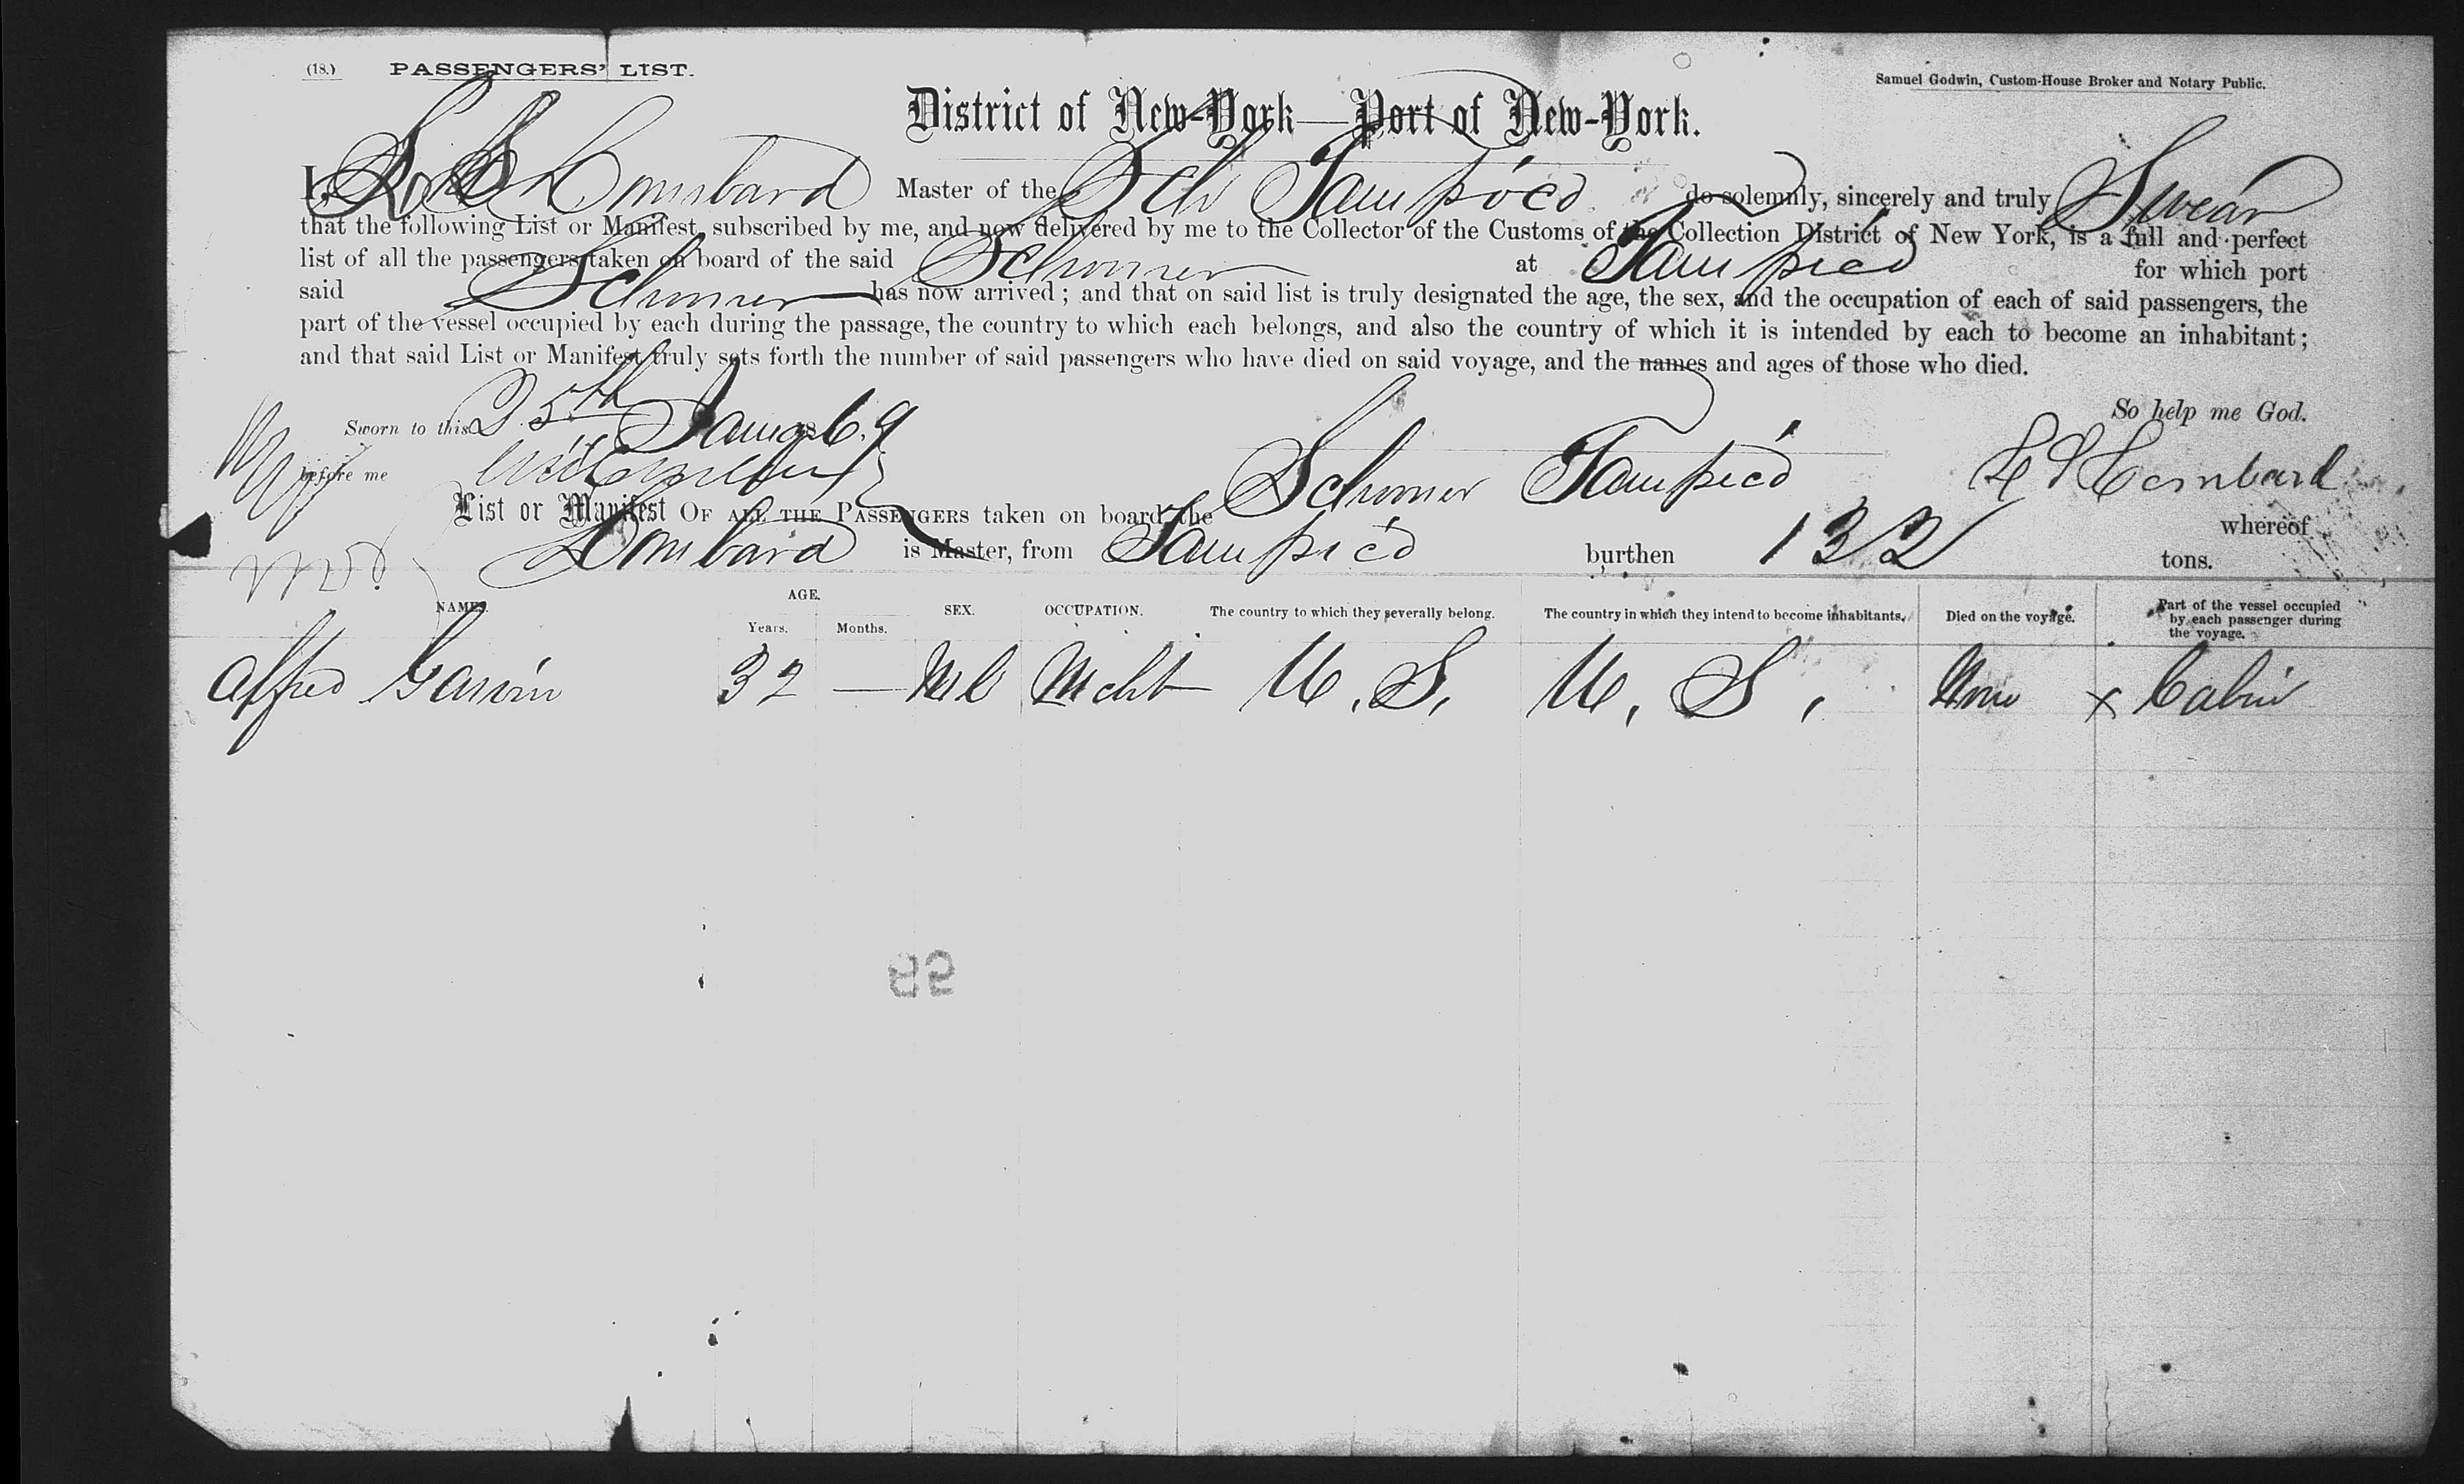 (18.) PASSENGERS' LIST.
Samuel Godwin, Custom-House Broker and Notary Public.
District of New-York—Port of New-York.
I, Lombard Master of the Sch Tampico do solemnly, sincerely and truly Swear
that the following List or Manifest, subscribed by me, and now delivered by me to the Collector of the Customs of the Collection District of New York, is a full and perfect
list of all the passengers taken on board of the said Schooner at Tampico for which port
said Schooner has now arrived; and that on said list is truly designated the age, the sex, and the occupation of each of said passengers, the
part of the vessel occupied by each during the passage, the country to which each belongs, and also the country of which it is intended by each to become an inhabitant;
and that said List or Manifest truly sets forth the number of said passengers who have died on said voyage, and the names and ages of those who died.
So help me God.
Sworn to this 25th 69
before me
Lombard
List or Manifest OF ALL THE PASSENGERS taken on board the Schooner Tampico whereof
Lombard is Master, from Tampico burthen 132 tons.
NAMES. AGE. Years. Months. SEX. OCCUPATION. The country to which they severally belong. The country in which they intend to become inhabitants. Died on the voyage. Part of the vessel occupied by each passenger during the voyage.
Alfred 32 — Mcht U.S. U.S. None x Cabin